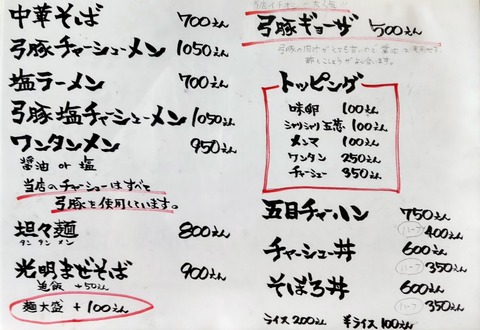 中華そば 700えん
弓豚チャーシューメン 1050えん
塩ラーメン 700えん
弓豚塩チャーシューメン 1050えん
ワンタンメン 950えん
醤油 or 塩
当店のチャーシューはすべて
弓豚を使用しています。
坦々麺 800えん
タンタンメン
光明まぜそば 900えん
追飯 +50えん
麺大盛 +100えん
弓豚ギョーザ 500えん
トッピング
味卵 100えん
シャリシャリ玉葱 100えん
メンマ 100えん
ワンタン 250えん
チャーシュー 350えん
五目チャーハン 750えん
ハーフ 400えん
チャーシュー丼 600えん
ハーフ 350えん
そぼろ丼 600えん
ハーフ 350えん
ライス 200えん 半ライス 100えん